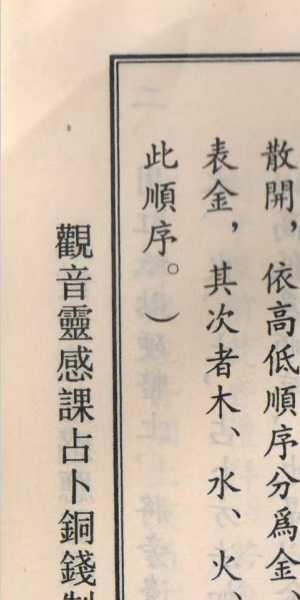 散開，依高低順序分爲金、
表金，其次者木、水、火、
此順序。）
觀音靈感課占卜銅錢